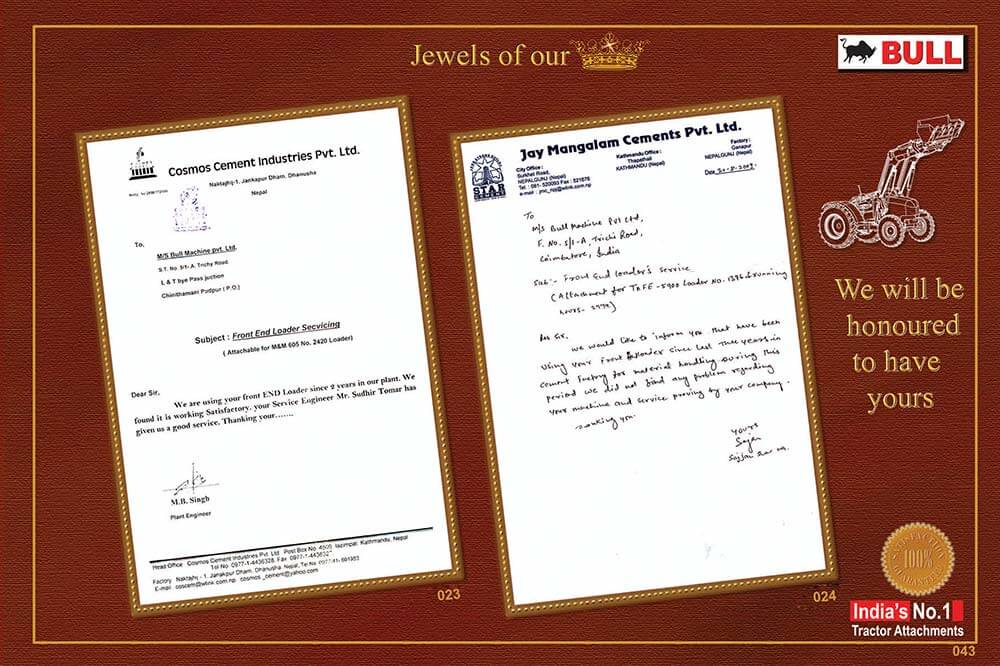 Jewels of our
BULL
Cosmos Cement Industries Pvt. Ltd.
Naktajhij-1, Jankapur Dham, Dhanusha
Nepal
To,
M/S Bull Machine pvt. Ltd.
S.T. No. 5/1- A, Trichy Road
L & T bye Pass juction
Chinthamani Pudpur (P.O.)
Subject : Front End Loader Secvicing
( Attachable for M&M 605 No. 2420 Loader)
Dear Sir,
We are using your front END Loader since 2 years in our plant. We
found it is working Satisfactory. your Service Engineer Mr. Sudhir Tomar has
given us a good service. Thanking your.......
M.B. Singh
Plant Engineer
Head Office Cosmos Cement Industries Pvt. Ltd Post Box No. 4506, lazimpat, Kathmandu, Nepal
Tel No. 0977-1-4436328, Fax 0977-1-4436327
Factory Naktajhij - 1, Janakpur Dham, Dhanusha, Nepal, Tel No.
E-mail coscem@wlink.com.np cosmos_cement@yahoo.com
023
Jay Mangalam Cements Pvt. Ltd.
STAR
City Office :
Surkhet Road,
NEPALGUNJ (Nepal)
Tel : 081-520093 Fax : 521676
e-mail : jmc_npj@wlink.com.np
Kathmandu Office :
Thapathali
KATHMANDU (Nepal)
Factory :
Ganapur
NEPALGUNJ (Nepal)
Date
To
M/s Bull Machine Pvt Ltd,
F. No. 5/1-A, Trichi Road,
Coimbatore, India
Sub:- Front End Loader's Service
(Attachment for TAFE -5900 Loader No. 1396 & running
hours-
Dear Sir,
We would like to inform you that have been
using your Front Endloader since last three years in
cement factory for material handling during this
period we did not find any problem regarding
your machine and service proving by your company.
Thanking you.
Yours
024
We will be
honoured
to have
yours
SATISFACTION
100%
GUARANTEE
India's No.1
Tractor Attachments
043